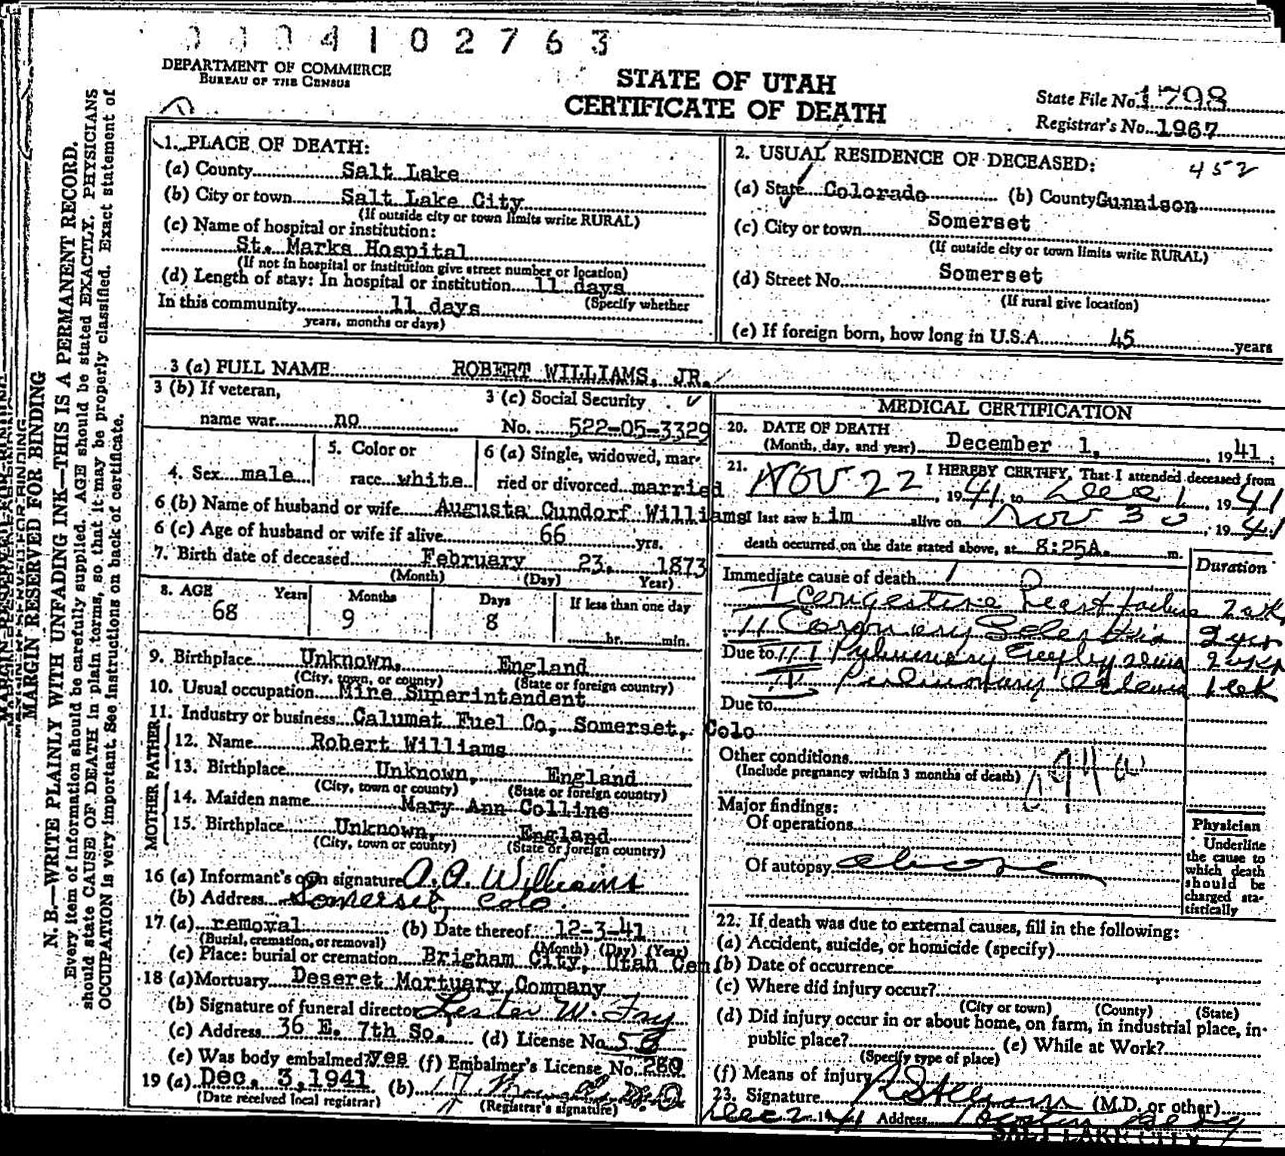 0004102763
DEPARTMENT OF COMMERCE
BUREAU OF THE CENSUS
STATE OF UTAH
CERTIFICATE OF DEATH
State File No. 1798
Registrar's No. 1967
MARGIN RESERVED FOR BINDING
N. B.—WRITE PLAINLY WITH UNFADING INK—THIS IS A PERMANENT RECORD.
Every item of information should be carefully supplied. AGE should be stated EXACTLY. PHYSICIANS
should state CAUSE OF DEATH in plain terms, so that it may be properly classified. Exact statement of
OCCUPATION is very important. See instructions on back of certificate.
1. PLACE OF DEATH:
(a) County Salt Lake
(b) City or town Salt Lake City
(If outside city or town limits write RURAL)
(c) Name of hospital or institution:
St. Marks Hospital
(If not in hospital or institution give street number or location)
(d) Length of stay: In hospital or institution 11 days
(Specify whether
In this community 11 days
years, months or days)
2. USUAL RESIDENCE OF DECEASED: 452
(a) State Colorado (b) County Gunnison
(c) City or town Somerset
(If outside city or town limits write RURAL)
(d) Street No. Somerset
(If rural give location)
(e) If foreign born, how long in U.S.A. 45 years
3 (a) FULL NAME ROBERT WILLIAMS, JR.
3 (b) If veteran,
name war no
3 (c) Social Security
No. 522-05-3329
4. Sex male
5. Color or
race white
6 (a) Single, widowed, mar-
ried or divorced married
6 (b) Name of husband or wife Augusta Cundorf Williams
6 (c) Age of husband or wife if alive 66 yrs.
7. Birth date of deceased February 23, 1873
(Month) (Day) Year)
8. AGE Years Months Days If less than one day
68 9 8 hr. min.
9. Birthplace Unknown, England
(City, town, or county) (State or foreign country)
10. Usual occupation Mine Superintendent
11. Industry or business Calumet Fuel Co, Somerset, Colo
FATHER
12. Name Robert Williams
13. Birthplace Unknown, England
(City, town or county) (State or foreign country)
MOTHER
14. Maiden name Mary Ann Colline
15. Birthplace Unknown, England
(City, town or county) (State or foreign country)
16 (a) Informant's own signature A. A. Williams
(b) Address Somerset, Colo.
17 (a) removal (b) Date thereof 12-3-41
(Burial, cremation, or removal) (Month) (Day) (Year)
(c) Place: burial or cremation Brigham City, Utah Cem
18 (a) Mortuary Deseret Mortuary Company
(b) Signature of funeral director Lester W. Fry
(c) Address 36 E. 7th So. (d) License No. 58
(e) Was body embalmed? Yes (f) Embalmer's License No. 260
19 (a) Dec. 3, 1941 (b)
(Date received local registrar) (Registrar's signature)
MEDICAL CERTIFICATION
20. DATE OF DEATH
(Month, day, and year) December 1, 1941
21. I HEREBY CERTIFY, That I attended deceased from
Nov 22, 1941, to Dec 1, 1941
I last saw him alive on Nov 30, 1941
death occurred on the date stated above, at 8:25A. m.
Immediate cause of death Duration
I Congestive heart failure 2 wk
II Coronary Sclerosis 2 yrs
Due to III Pulmonary Emphysema
IV Pulmonary Edema 1 wk
Due to
Other conditions
(Include pregnancy within 3 months of death)
Major findings:
Of operations
Of autopsy above
Physician
Underline
the cause to
which death
should be
charged sta-
tistically
22. If death was due to external causes, fill in the following:
(a) Accident, suicide, or homicide (specify)
(b) Date of occurrence
(c) Where did injury occur?
(City or town) (County) (State)
(d) Did injury occur in or about home, on farm, in industrial place, in
public place? (e) While at Work?
(Specify type of place)
(f) Means of injury
23. Signature (M.D. or other)
Dec 2 1941 Address
SALT LAKE CITY